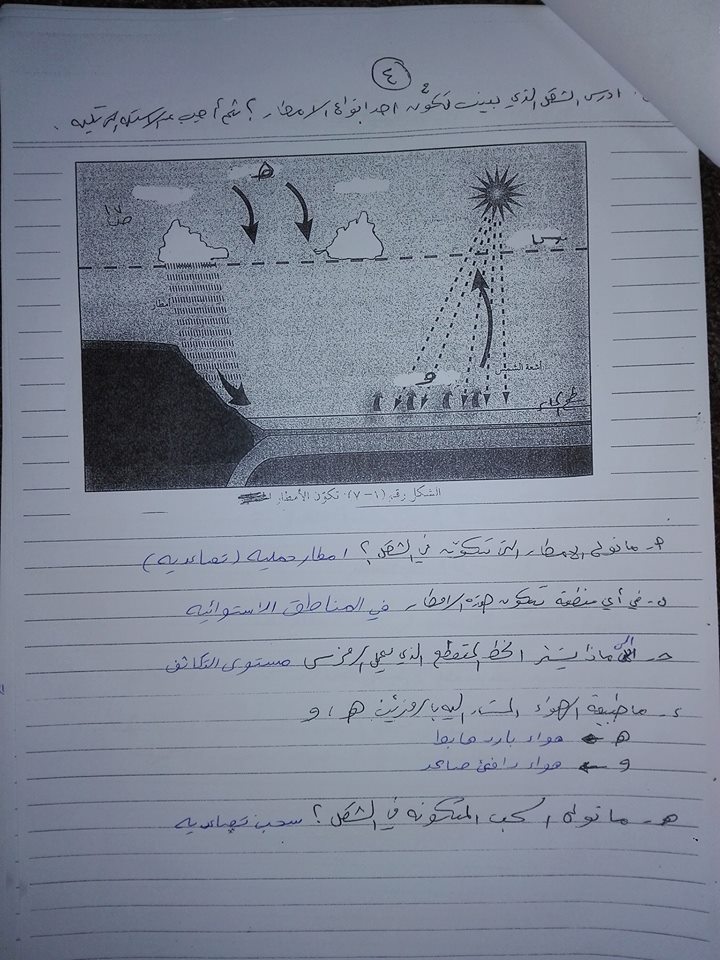 ٤
ادرس الشكل الذي يبين تكوّن احد انواع الامطار؟ ثم أجب عن الاسئلة التالية.
هـ
ص١٧
س
أمطار
أشعة الشمس
و
سطح الماء
الشكل رقم (١-٧): تكوّن الأمطار
أ- ما نوع الامطار التي تكونت في الشكل؟ امطار حملية (تصاعدية)
ب- في أي منطقة تتكون هذه الامطار في المناطق الاستوائية
جـ- الى ماذا يشير الخط المتقطع الذي يحمل الرمز س مستوى التكاثف
د- ما طبيعة الهواء المشار اليه بالرمزين هـ ، و
هـ ← هواء بارد هابط
و ← هواء دافئ صاعد
هـ- ما نوع السحب المتكونه في الشكل؟ سحب تصاعديه